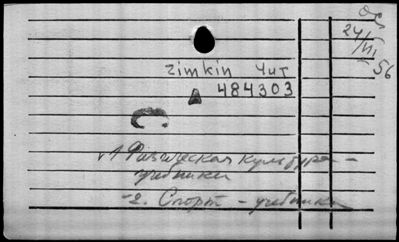 24/VII 56
zimkin Чит
А 484303
√1 Физическая культура –
учебники
–2. Спорт – учебники